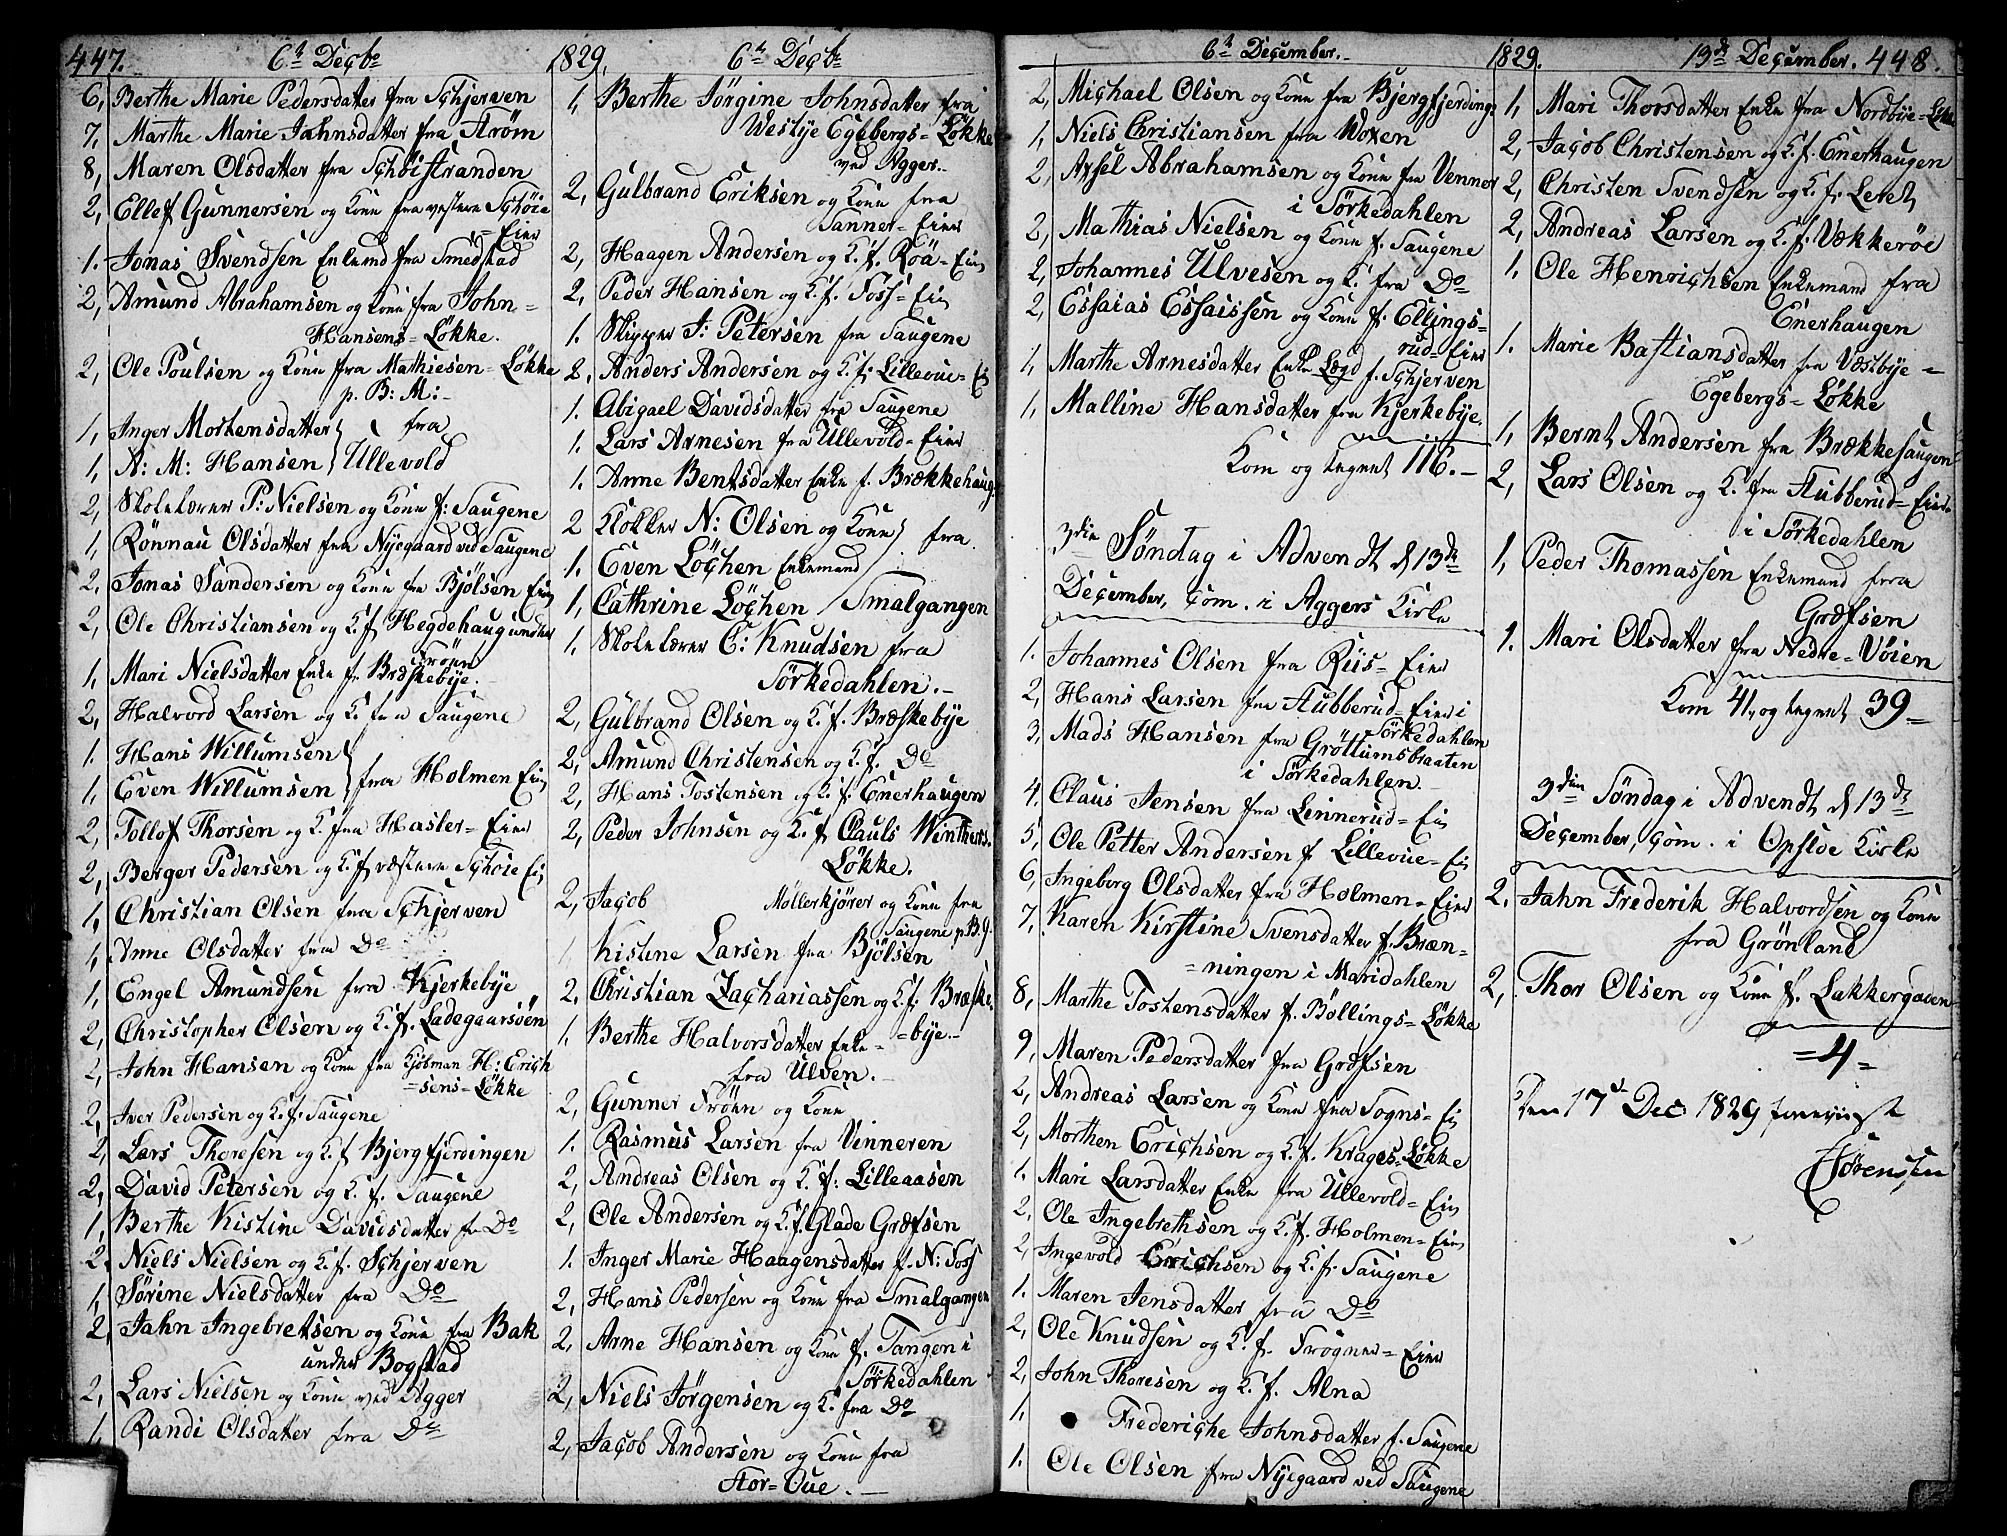 447. 6te Decbr 1829. 6te Decbr
6, Berthe Marie Pedersdatter fra Schjerven
7, Marthe Marie Jahnsdatter fra Strøm
8, Maren Olsdatter fra Schøistranden
2, Ellef Gunnersen og Kone fra vestere Schøie
= Eier
1. Jonas Svendsen Enkemd fra Smedstad
2, Amund Abrahamsen og Kone fra John =
Hansens = Løkke.
2, Ole Poulsen og Kone fra Mathiesen = Løkke
p. B: M:
1, Inger Mortensdatter } fra
1, A: M: Hansen } Ullevold
2, Skolelærer P: Nielsen og Kone f: Saugene
1, Rønnau Olsdatter fra Nyegaard ved Saugene
2, Jonas Sandersen og Kone fra Bjølsen Eier
2, Ole Christiansen og K. f. Hegdehaug under
Frøen
1, Mari Nielsdatter Enke fr. Bræskebye.
2, Halvord Larsen og K. fra Saugene
1. Hans Willumsen }
1, Even Willumsen } fra Holmen Eier
2, Tollof Thorsen og K. fra Hasler = Eier
2, Berger Pedersen og K. f. vestere Schøie Eier
1, Christian Olsen fra Schjerven
1, Anne Olsdatter fra Do
1, Engel Amundsen fra Kjerkebye
2, Christopher Olsen og K. f. Ladegaarsøen
2, John Hansen og Kone fra Kjøbman H: Erich
= sens = Løkke
2, Iver Pedersen og K. f. Saugene
2, Lars Thoresen og K. f. Bjergfjerdingen
2, David Petersen og K. f. Saugene
1, Berthe Kistine Davidsdatter fr Do
2. Niels Nielsen og K. f. Schjerven
1, Sørine Nielsdatter fra Do
2, Jahn Ingebretsen og Kone fra Bak
under Bogstad
2, Lars Nielsen og Kone ved Agger
1, Randi Olsdatter fra Do
1, Berthe Jørgine Johnsdatter fra
Westye Egebergs = Løkke
ved Agger.
2, Gulbrand Eriksen og Kone fra
Tanner = Eier
2, Haagen Andersen og K. f. Røa = Eier
2, Peder Hansen og K. f. Foss = Eier
1. Skipper J: Petersen fra Saugene
2, Anders Andersen og K. f. Lillevue = Ei
1. Abigael Davidsdatter fra Saugene
1. Lars Arnesen fra Ullevold = Eier
1. Anne Bentsdatter Enke f. Brækkehaug.
2 Klokker N: Olsen og Kone } fra
1. Even Løchen Enkemand
1, Cathrine Løchen } Smalgangen
1, Skolelærer C: Knudsen fra
Sørkedahlen.
2, Gulbrand Olsen og K. f. Bræskebye
2, Amund Christensen og K. f. Do
2, Hans Tostensen og K. f. Enerhaugen
2, Peder Johnsen og K. f. Clauls Winthers.
Løkke.
2, Jacob Møllerkjører og Kone fra
Saugene p. B. G.
1 Kistine Larsen fra Bjølsen
2. Christian Zachariassen og K. f. Bræske
1. Berthe Halvorsdatter Enke = = bye.
fra Ulven.
2, Gunner Frøen og Kone
1. Rasmus Larsen fra Vinneren
2, Andreas Olsen og K. f. Lilleaasen
2, Ole Andersen og K. f. Glads Græfsen
1. Inger Marie Haagensdatter f. N: Foss
2, Hans Pedersen og Kone fra Smalgangen
2, Arne Hansen og Kone f. Tangen i
Sørkedahlen
2, Niels Jørgensen og K. fra Do
2, Jacob Andersen og Kone fra
Stor = Oue.
6te December. 1829. 13de December. 448.
2, Michael Olsen og Kone fra Bjergfjerding.
1, Niels Christiansen fra Woxen
2, Axsel Abrahamsen og Kone fra Venner
i Sørkedahlen
2, Mathias Nielsen og Kone f. Saugene
2, Johannes Ulvesen og K. fra Do
2, Essaias Essaissen og Kone f. Ellings =
rud = Eier
1, Marthe Arnesdatter Enke Lægd f. Schjerven
1, Malline Hansdatter fra Kjerkebye.
Kom og tegnet 116.
3die Søndag i Advendt d 13de
December, Com. i Aggers Kirke
1. Johannes Olsen fra Riis = Eier
2, Hans Larsen fra Stubberud = Eier i
Sørkedahlen
3, Mads Hansen fra Grøttumsbraaten
i Sørkedahlen.
4. Claus Jensen fra Linnerud = Ei
5, Ole Petter Andersen f. Lillevue = Ei
6, Ingeborg Olsdatter fra Holmen = Eier
7, Karen Kirstine Svensdatter f. Bræn =
= ningen i Maridahlen
8, Marthe Tostensdatter f. Bøllings = Løkke
9, Maren Pedersdatter fra Græfsen
2, Andreas Larsen og Kone fra Sogns = Ei
2, Morthen Erichsen og K. f. Krages = Løkke
1. Mari Larsdatter Enke fra Ullevold = Eier
2, Ole Ingebrethsen og K. f. Holmen = Eier
2, Ingevold Erichsen og K. f. Saugene
1. Maren Jensdatter fra Do
2, Ole Knudsen og K. f. Frogner = Eier
2, John Thoresen og K. f. Alna
1. Frederiche Johnsdatter f. Saugene
1. Ole Olsen fra Nyegaard ved Saugene
1, Mari Thorsdatter Enke fra Nordbye = Løkke
2, Jacob Christensen og K. f. Enerhaugen
2, Christen Svendsen og K. f. Leret
2, Andreas Larsen og K. f. Vækkerøe
1. Ole Henrichsen Enkemand fra
Enerhaugen
1. Marie Bastiansdatter fra Væstbye =
Egebergs = Løkke
1, Bernt Andersen fra Brækkehaugen
2, Lars Olsen og K. fra Stubberud = Eier
i Sørkedahlen
1, Peder Thomassen Enkemand fra
Græfsen
1. Mari Olsdatter fra Nedre = Vøien
Kom 41, og tegnet 39
3die Søndag i Advendt d 13de
December, Com. i Opsloe Kirke
2. Jahn Frederik Halvordsen og Kone
fra Grønland
2, Thor Olsen og Kone f. Lakkergaven
= 4 =
Den 17de Dec 1829 foreviist
Sørenssen